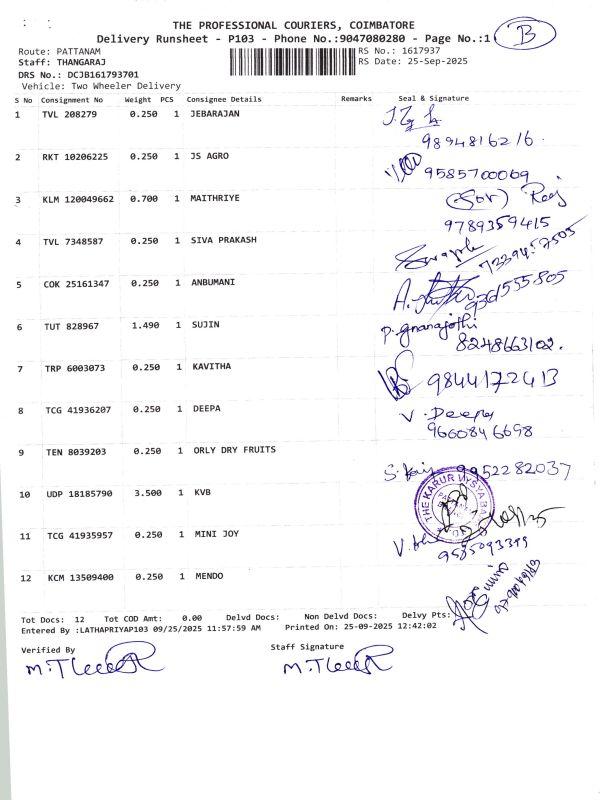 THE PROFESSIONAL COURIERS, COIMBATORE
Delivery Runsheet - P103 - Phone No.:9047080280 - Page No.:1
B
Route: PATTANAM
RS No.: 1617937
Staff: THANGARAJ
RS Date: 25-Sep-2025
DRS No.: DCJB161793701
Vehicle: Two Wheeler Delivery
S No Consignment No Weight PCS Consignee Details Remarks Seal & Signature
1 TVL 208279 0.250 1 JEBARAJAN
9894816216.
2 RKT 10206225 0.250 1 JS AGRO
9585700069
3 KLM 120049662 0.700 1 MAITHRIYE
9789359415
4 TVL 7348587 0.250 1 SIVA PRAKASH
5 COK 25161347 0.250 1 ANBUMANI
6 TUT 828967 1.490 1 SUJIN
P. gnanajothi
8248663102.
7 TRP 6003073 0.250 1 KAVITHA
9844172413
8 TCG 41936207 0.250 1 DEEPA
V. Deepa
9660846698
9 TEN 8039203 0.250 1 ORLY DRY FRUITS
9952282037
10 UDP 18185790 3.500 1 KVB
THE KARUR VYSYA BA
11 TCG 41935957 0.250 1 MINI JOY
9585093399
12 KCM 13509400 0.250 1 MENDO
Tot Docs: 12 Tot COD Amt: 0.00 Delvd Docs: Non Delvd Docs: Delvy Pts:
Entered By :LATHAPRIYAP103 09/25/2025 11:57:59 AM Printed On: 25-09-2025 12:42:02
Verified By Staff Signature